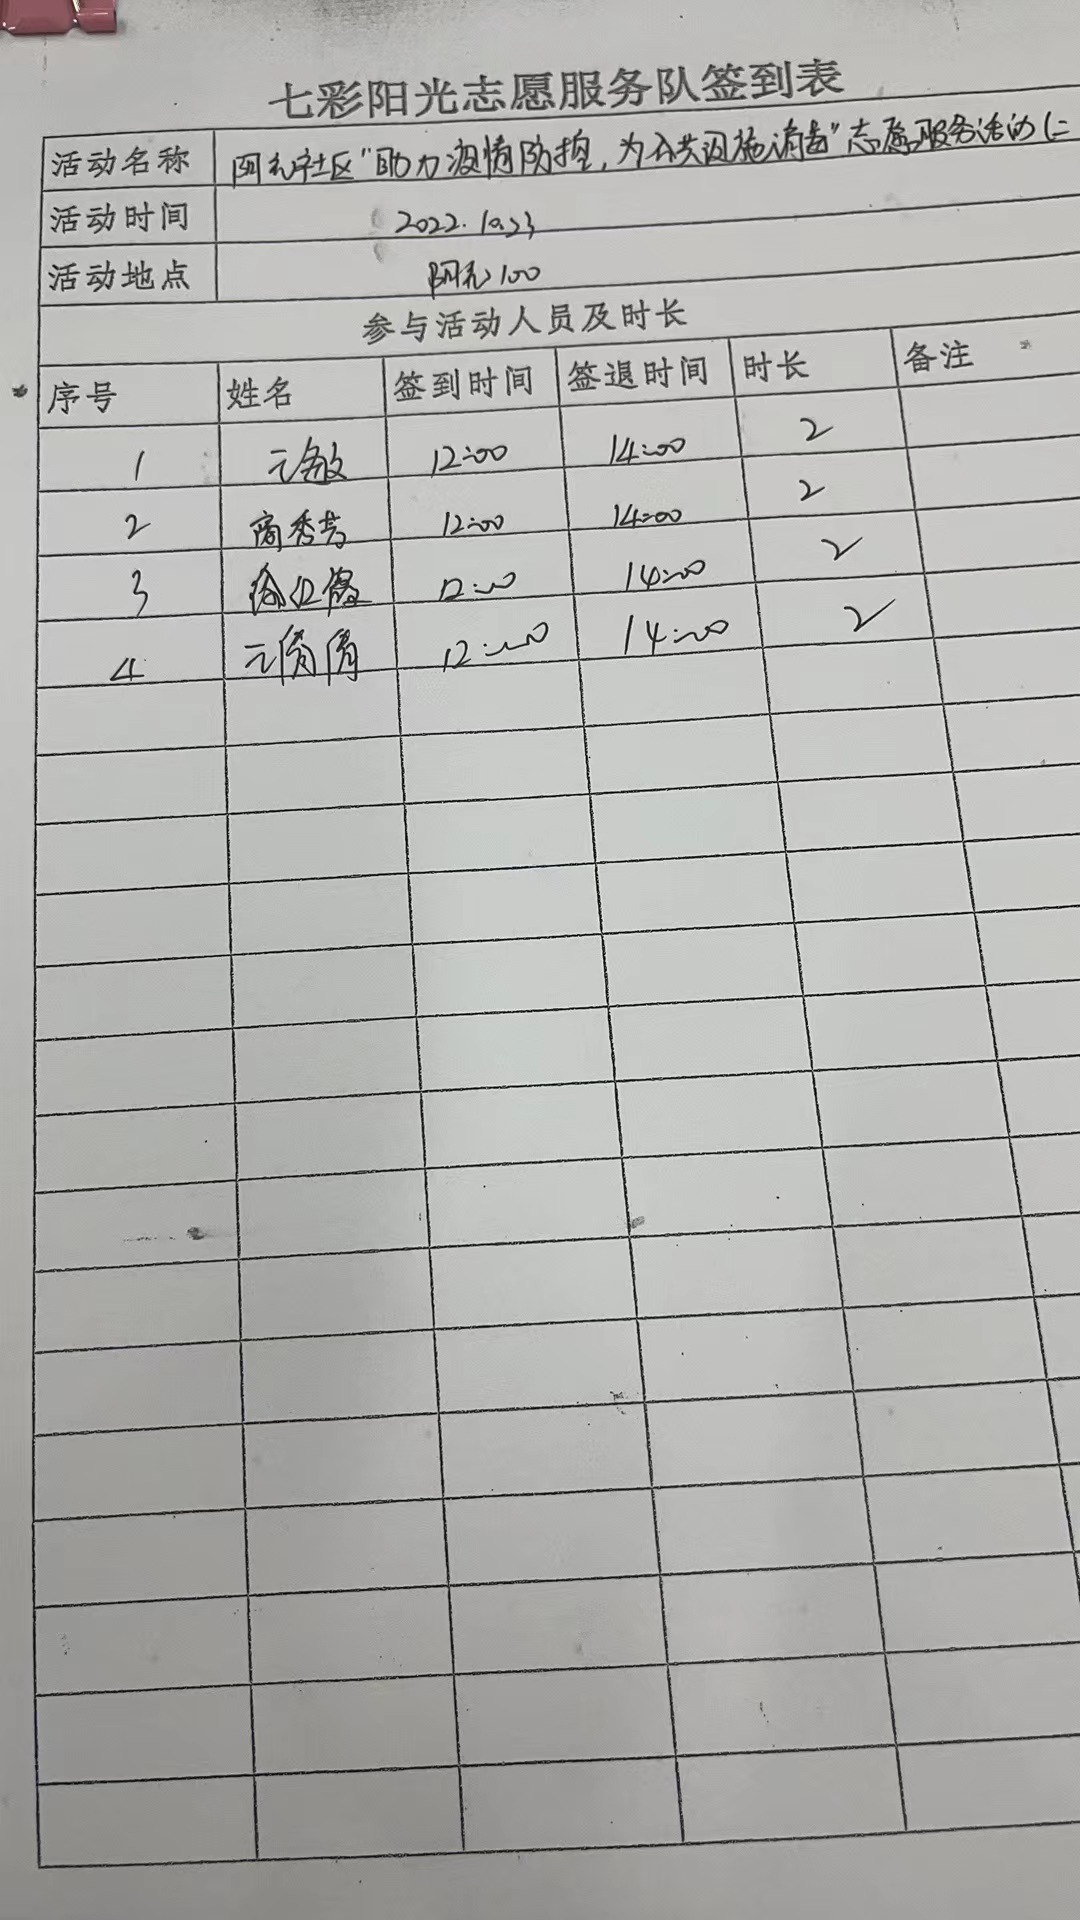 七彩阳光志愿服务队签到表
活动名称 阿元社区"助力疫情防控,为公共设施消毒"志愿服务活动(二
活动时间 2022.10.23
活动地点 阿元100
参与活动人员及时长
序号 姓名 签到时间 签退时间 时长 备注
1 元敏 12:00 14:00 2
2 商秀芳 12:00 14:00 2
3 12:00 14:00 2
4 元倩倩 12:00 14:00 2